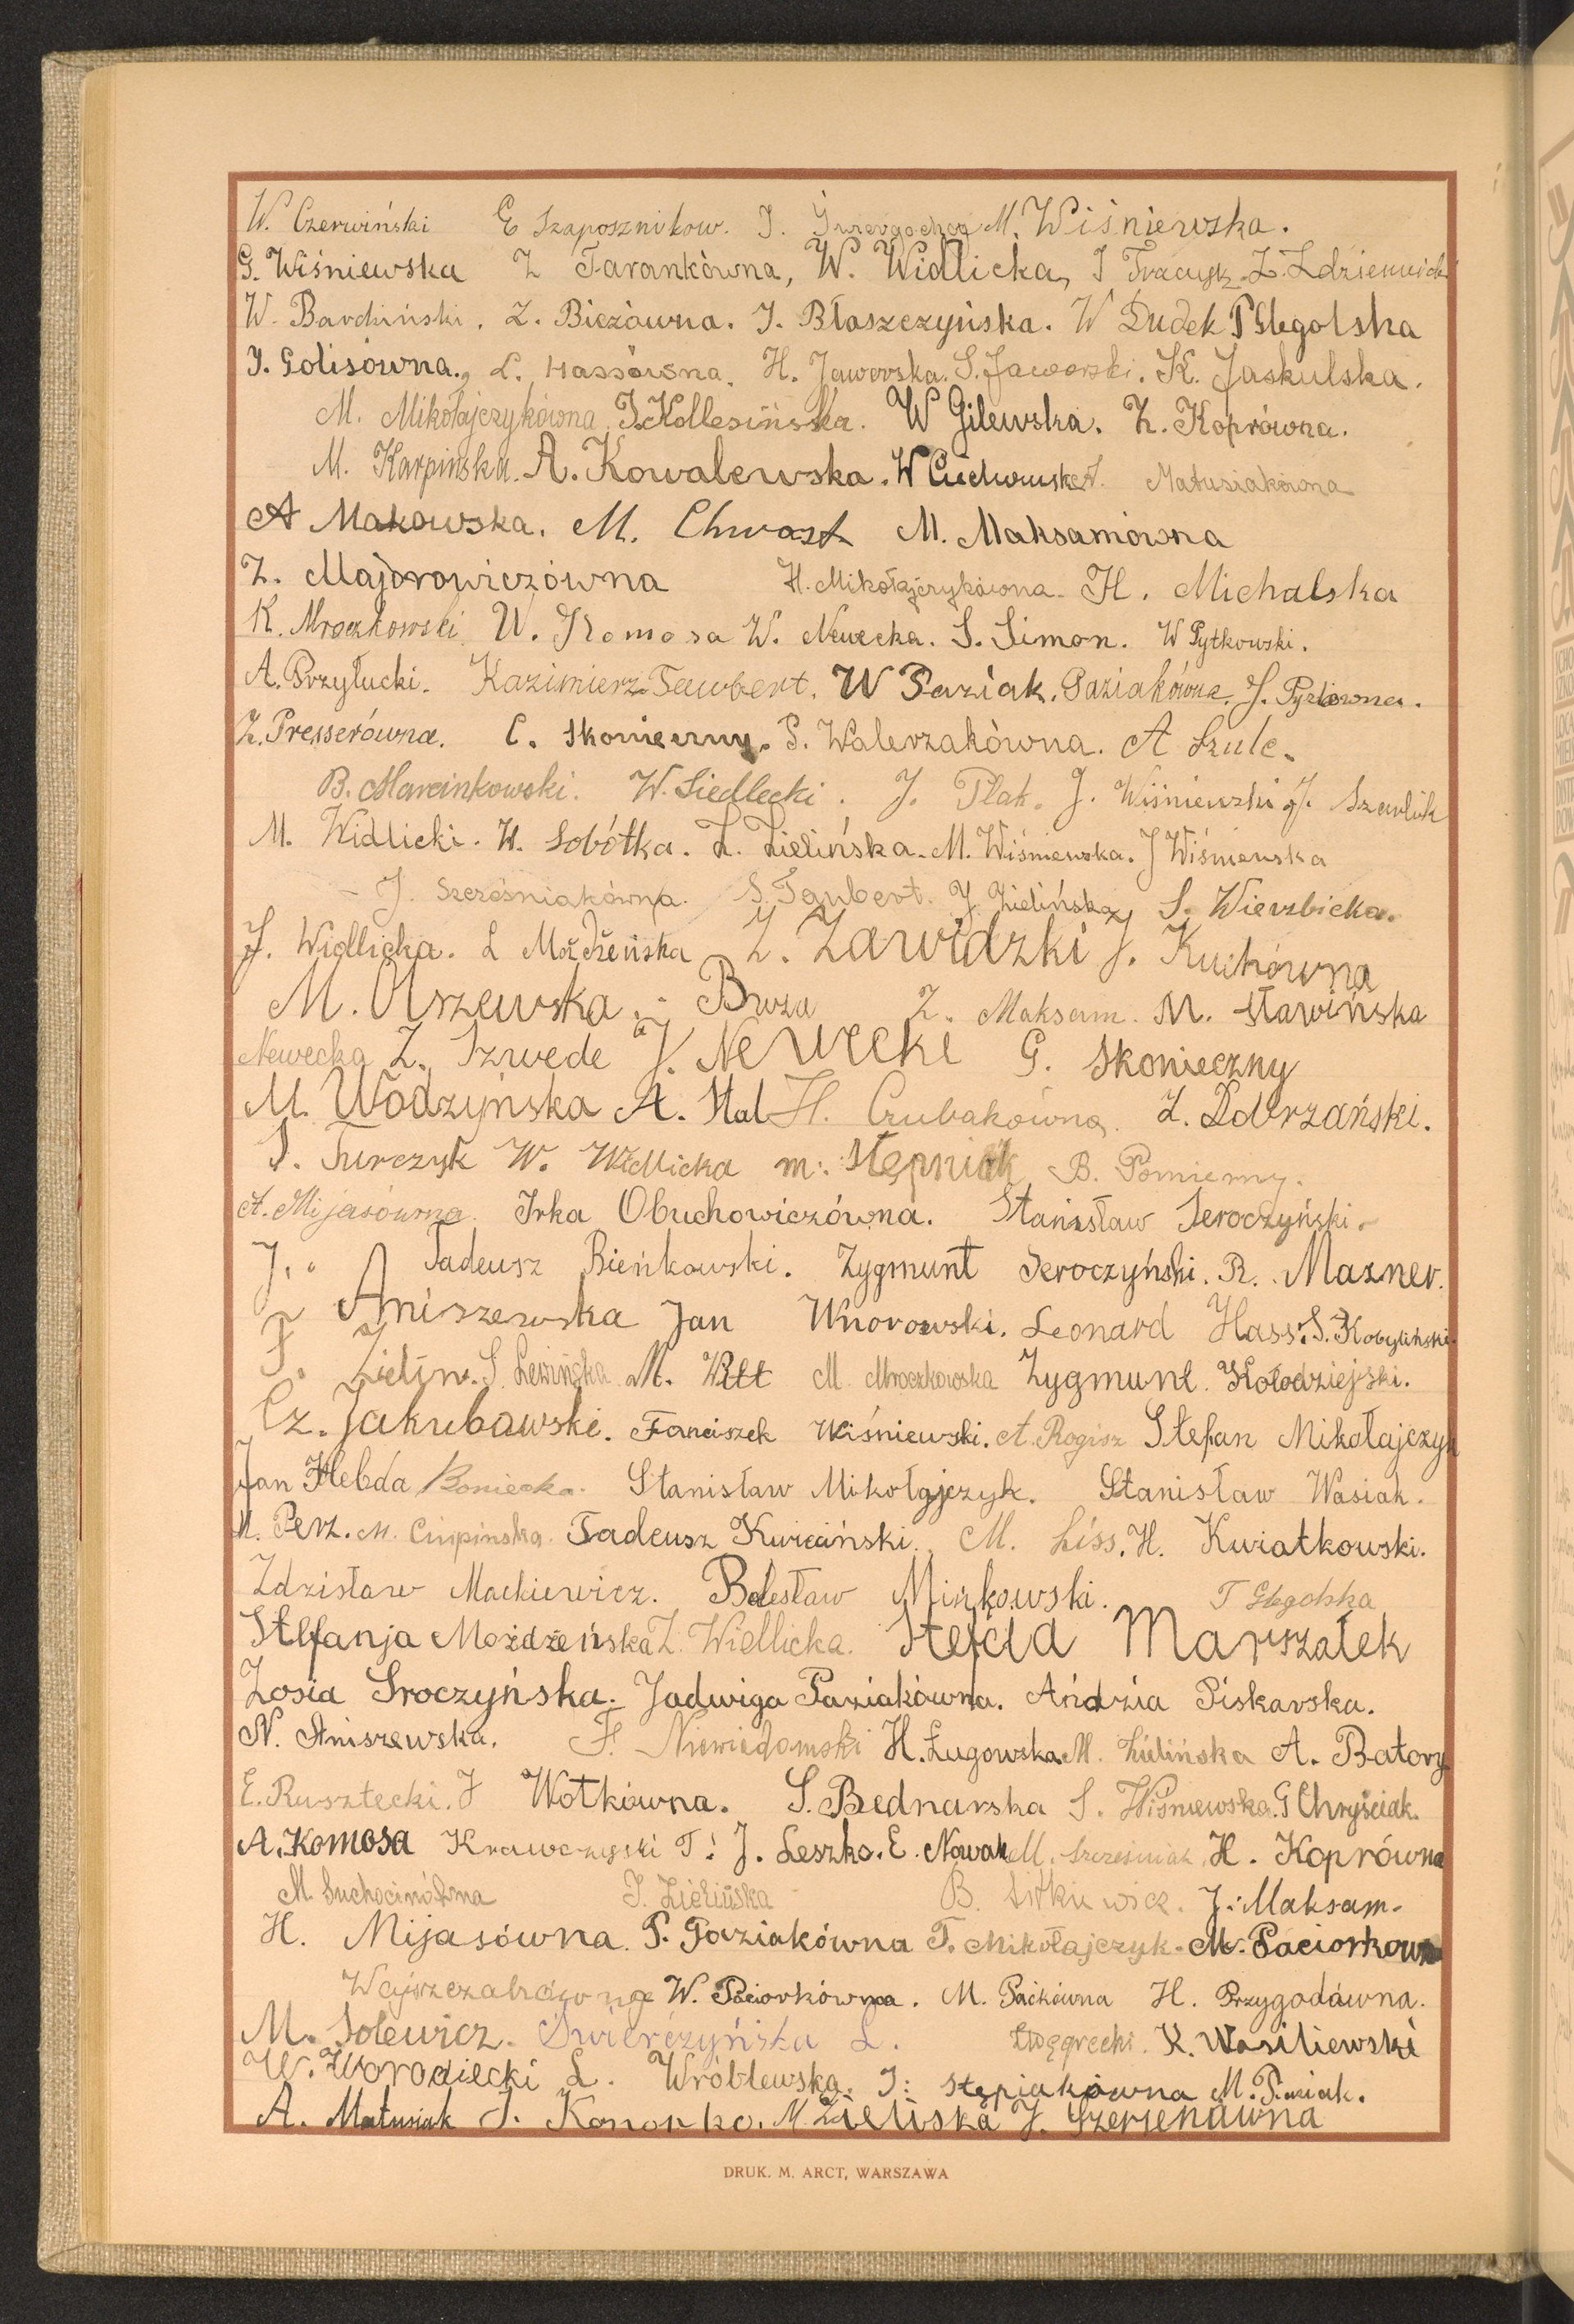 W. Czerwiński E Szaposznikow. J. M. Wiśniewska.
G. Wiśniewska Z Tarankówna, W. Widlicka, J Z.
W. Z. Bieżówna. J. Błaszczyńska. W Dudek
J. Golisówna., L. Hassówna. H. Jaworska. S. Jaworski. K. Jaskulska.
M. Mikołajczykówna. W Gilewska. Z. Koprówna.
M. Karpińska. A. Kowalewska. W Matusiakówna
A Makowska. M. Chwast M. Maksamówna
Z. Majorowiczówna H. Mikołajczykówna. H. Michalska
K. Mroczkowski W. Komosa W. Newecka. S. Simon. W Pytkowski.
A. Przyłucki. Kazimierz Taubert. W Paziak. Paziakówna. J.
Z. Presserówna. C. Skonieczny. S. Walerzakówna. A Szulc.
B. Marcinkowski. W. Siedlecki. J. Ptak. J. Wiśniewski J. Szawlik
M. Widlicki. W. Sobótka. Z. Zielińska. M. Wiśniewska. J Wiśniewska
J. Szcześniakówna. S. Taubert. J. Zielińska, S. Wierzbicka.
J. Widlicka. L Możdżeńska Z. Zawidzki J. Kućkówna
M. Olszewska. Z. Maksam. M. Sławińska
Newecka Z. Szwede J. Newecki G. Skonieczny
M. Wodzyńska A. Stal H. Czubakówna. Z. Dobrzański.
J. Turczyk W. Widlicka m. Stępniak B. Pomierny.
A. Mijasówna. Irka Obuchowiczówna. Stanisław Seroczyński.
J. Tadeusz Bieńkowski. Zygmunt Seroczyński. R. Mazner.
Aniszewska Jan Wnorowski. Leonard Hass. S. Kobyliński.
F. Zielin. S. Lewińska M. Witt M Mroczkowska Zygmunt Kołodziejski.
Cz. Jakubawski. Franciszek Wiśniewski. A. Rogisz Stefan Mikołajczyk
Jan Hebda Boniecka. Stanisław Mikołajczyk. Stanisław Wasiak.
M. Perz. M. Ciupinska. Tadeusz Kwieciński. M. Liss. H. Kwiatkowski.
Zdzisław Mackiewicz. Bolesław Mirkowski. T
Stefanja Możdżeńska Z. Widlicka. Stefcia Marszałek
Zosia Sroczyńska. Jadwiga Paziakówna. Andzia Piskarska.
N. Aniszewska. F. Niewiadomski H. Ługowska. M. Zielińska A. Batory
E. Rusztecki. J Wotkówna. S. Bednarska S. Wiśniewska. G Chryściak.
A. Komosa Krawczyski T. J. Leszko. E. Nowak M. Szcześniak H. Koprówna
M. Suchocinówna J. Zielińska B. J. Maksam.
H. Mijasówna. P. Paziakówna T. Mikołajczyk. M. Paciorkowa
W. Paciorkówna. M. Paćkówna H. Przygodówna.
M. Solewicz. Świerczyńska L. Zwęgrecki. K. Wasiliewski
W. L. Wróblewska. J: Stępiakówna M. Paziak.
A. Matusiak J. Kononko. M. Zieliska J. Szerszenówna
DRUK. M. ARCT, WARSZAWA